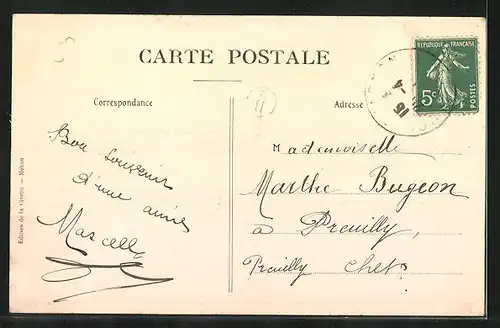 CARTE POSTALE
Correspondance
Adresse
REPUBLIQUE FRANÇAISE
5c
POSTES
15 -4
Bon souvenir
d'une amie
Marcelle
Mademoiselle
Marthe Bugeon
à Preuilly,
Preuilly Cher
Edition de la Gerbe — Mehun